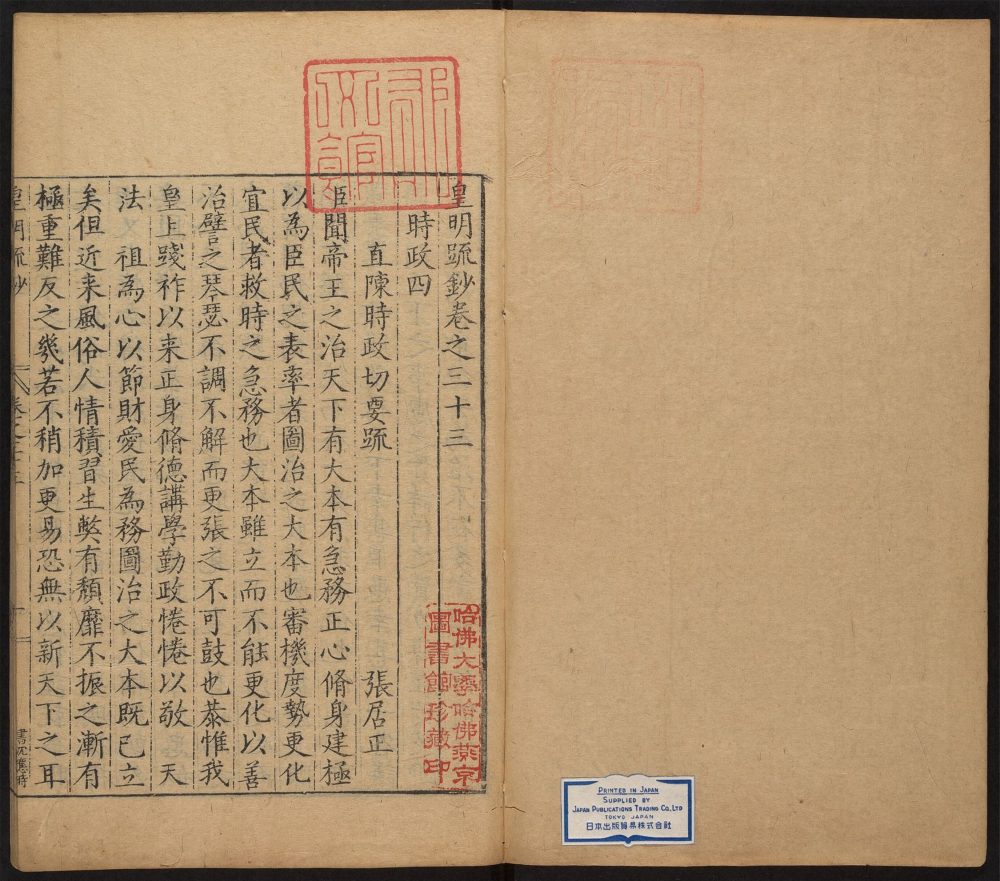 皇明疏鈔卷之三十三
時政四
直陳時政切要疏 張居正
臣聞帝王之治天下有大本有急務正心脩身建極
以為臣民之表率者圖治之大本也審機度勢更化
宜民者救時之急務也大本雖立而不能更化以善
治譬之琴瑟不調不解而更張之不可鼓也恭惟我
皇上踐祚以来正身脩德講學勤政惓惓以敬 天
法 祖為心以節財愛民為務圖治之大本既已立
矣但近来風俗人情積習生弊有頹靡不振之漸有
極重難反之幾若不稍加更易恐無以新天下之耳
皇明疏鈔
哈佛大學哈佛燕京
圖書館珍藏印
PRINTED IN JAPAN
SUPPLIED BY
JAPAN PUBLICATIONS TRADING CO., LTD
TOKYO JAPAN
日本出版貿易株式会社